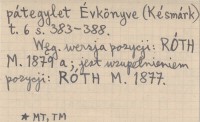 pátegylet Évkönyve (Késmárk)
t. 6 s. 383-388.
Węg. wersja pozycji: RÓTH
M. 1879 a; jest uzupełnieniem
pozycji: RÓTH M. 1877.
* MT, TM